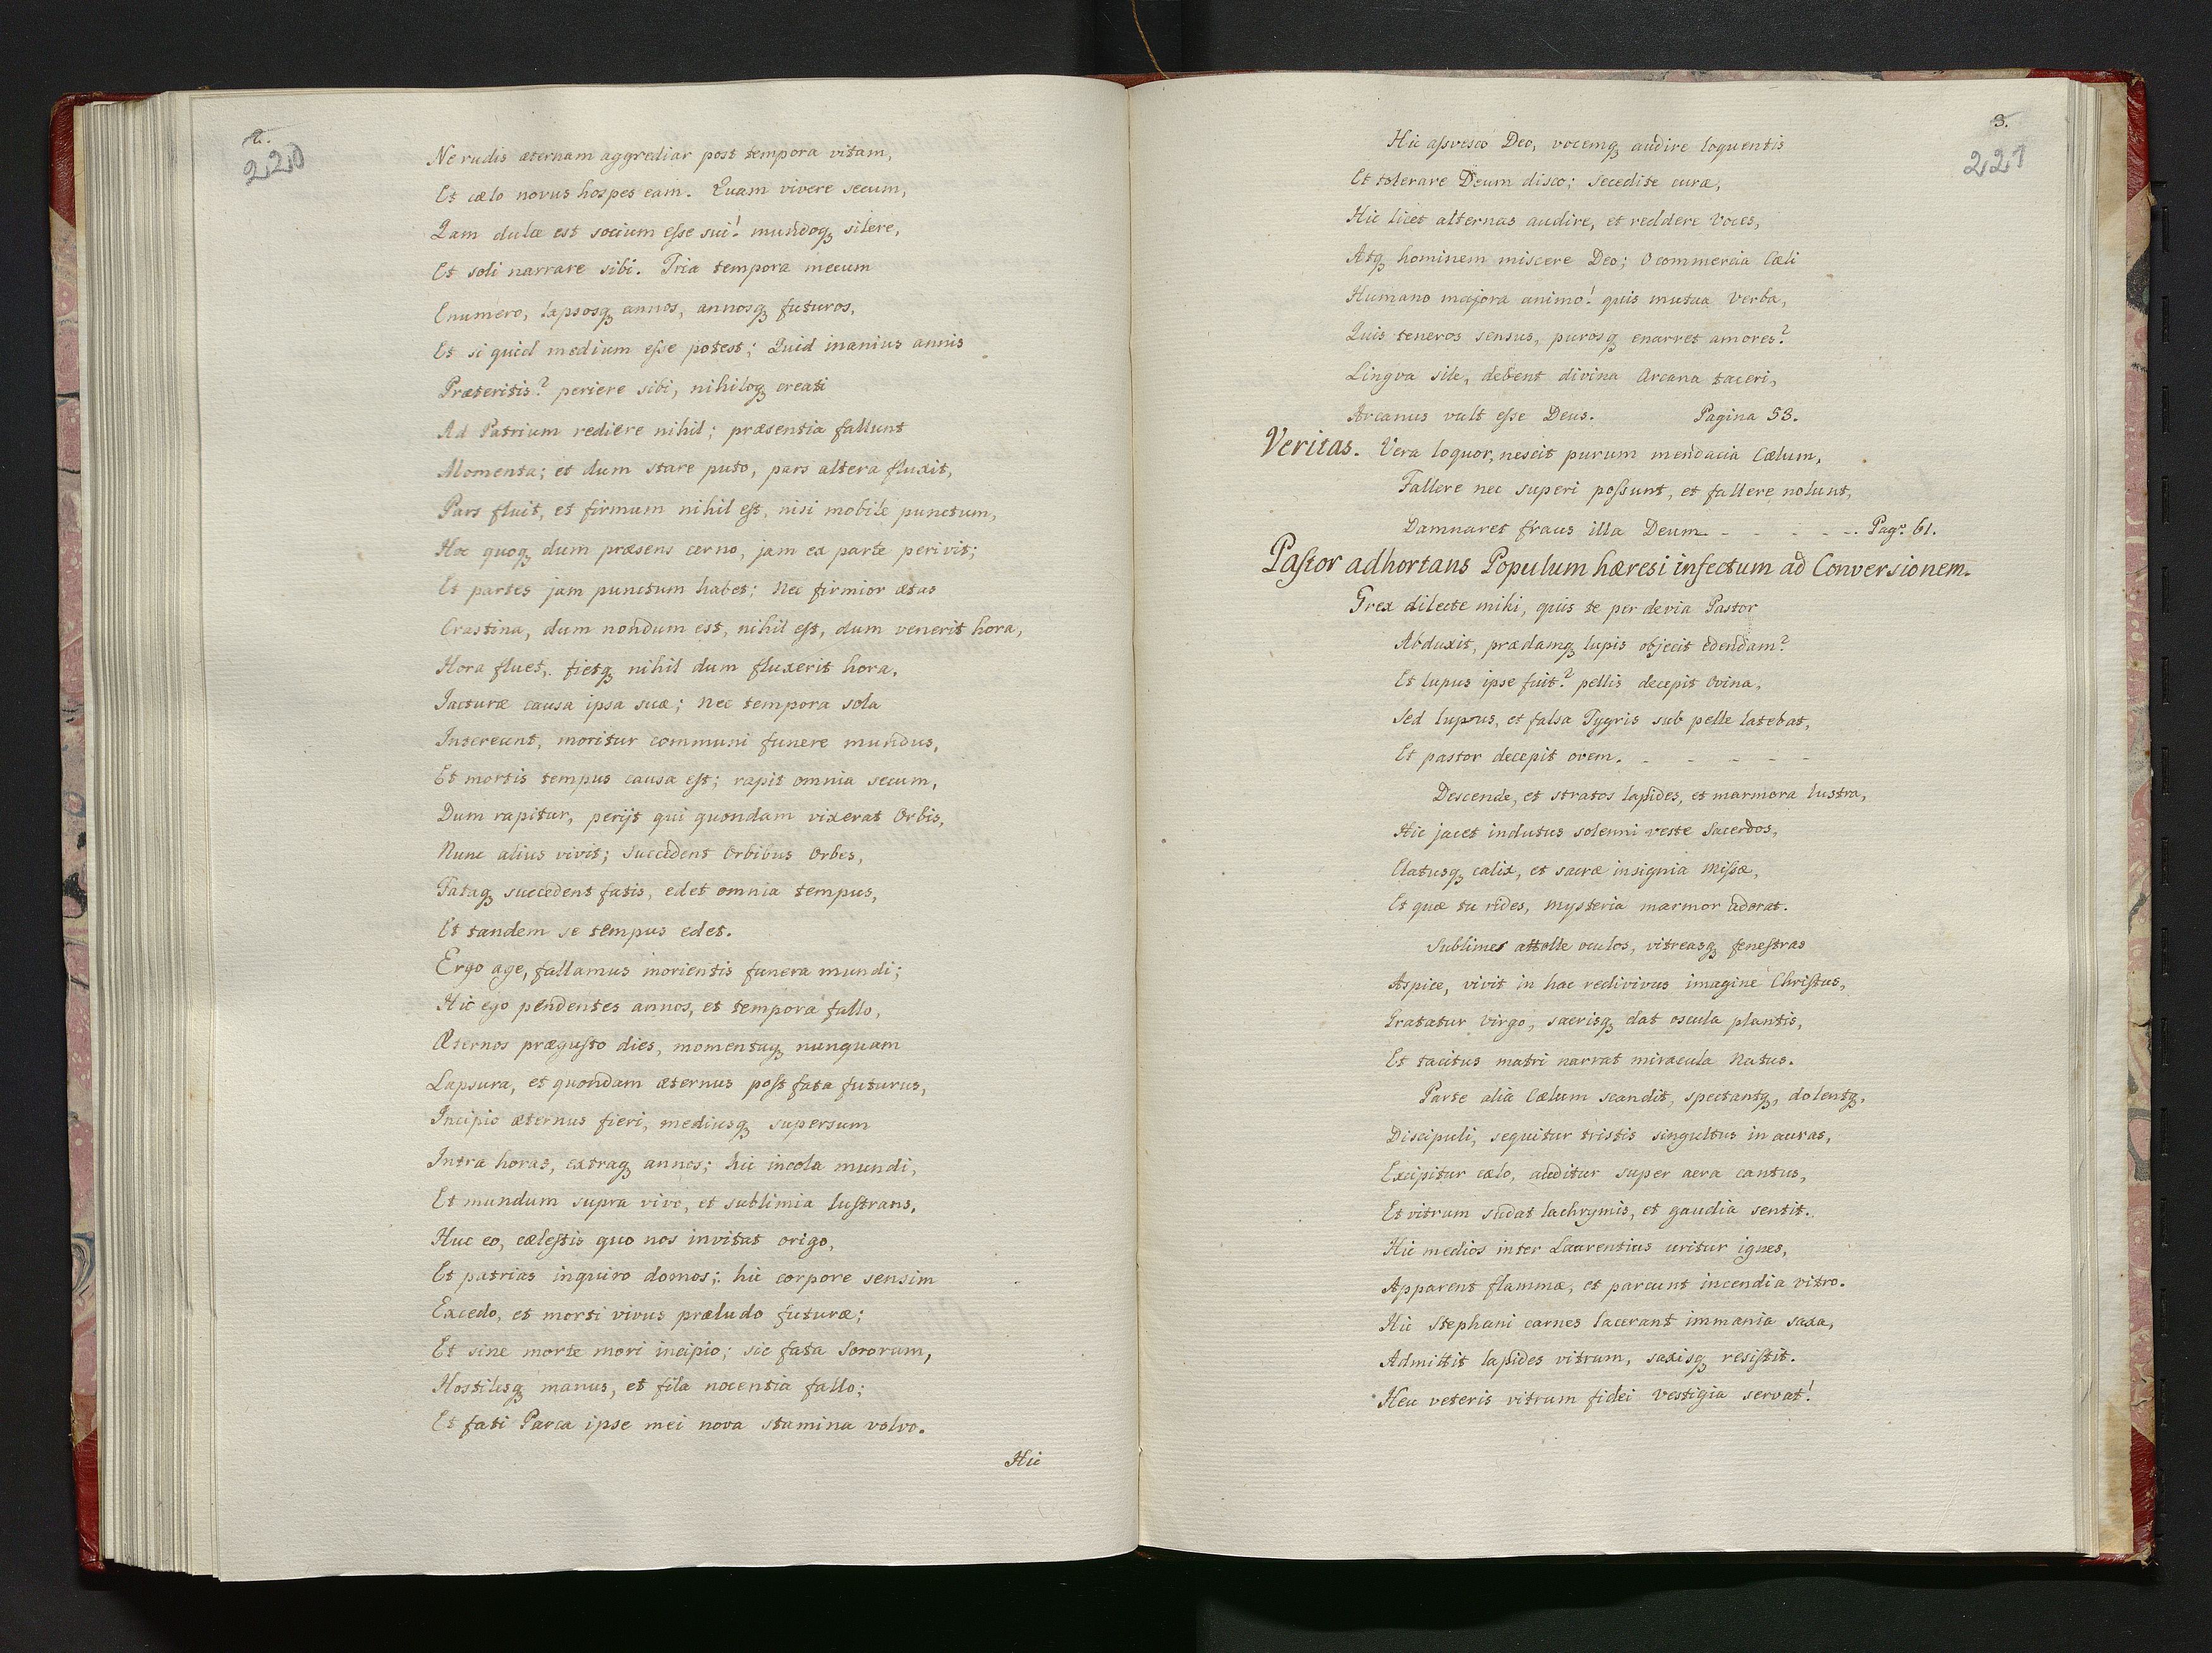 2.
220
Ne rudis æternam aggrediar post tempora vitam,
Et cælo novus hospes eam. Quam vivere secum,
Qam dulce est socium eſse sui! mundoq; silere,
Et soli narrare sibi. Tria tempora mecum
Enumero, lapsosq; annos, annosq; futuros,
Et si quid medium eſse potest; Quid inanius annis
Præteritis? periere sibi, nihiloq; creati
Ad Patrium rediêre nihil; præsentia fallunt
Momenta; et dum stare puto, pars altera fluxit,
Pars fluit, et firmum nihil eſt, nisi mobile punctum,
Hoc quoq; dum præsens cerno, jam ex parte perivit;
Et partes jam punctum habet; Nec firmior ætas
Crastina, dum nondum est, nihil eſt, dum venerit hora,
Hora fluet, fietq; nihil dum fluxerit hora,
Jacturæ causa ipsa suæ; Nec tempora sola
Intereunt, moritur communi funere mundus,
Et mortis tempus causa eſt; rapit omnia secum,
Dum rapitur, perijt qui quondam vixerat Orbis,
Nunc alius vivit; Succedent Orbibus Orbes,
Fataq; succedent fatis, edet omnia tempus,
Et tandem se tempus edet.
Ergo age, fallamus morientis funera mundi;
Hic ego pendentes annos, et tempora fallo,
Æternos præguſto dies, momentaq; nunquam
Lapsura, et quondam æternus poſt fata futurus,
Incipio æternus fieri, mediusq; supersum
Intra horas, extraq; annos; hic incola mundi,
Et mundum supra vivo, et sublimia luſtrans,
Huc eo, cæleſtis quo nos invitat origo,
Et patrias inquiro domos; hic corpore sensim
Excedo, et morti vivus præludo futuræ;
Et sine morte mori incipio; sic fata Sororum,
Hostilesq; manus, et fila nocentia fallo;
Et fati Parca ipse mei nova stamina volvo.
Hic
3.
221
Hic aſsvesco Deo, vocemq; audire loquentis
Et tolerare Deum disco; Secedite curæ,
Hic licet alternas audire, et reddere Voces,
Atq; hominem miscere Deo; O commercia Cæli
Humano majora animo! quis mutua Verba,
Quis teneros sensus, purosq; enarret amores?
Lingva sile, debent divina Arcana taceri,
Arcanus vult eſse Deus. Pagina 53.
Veritas. Vera loquor, nescit purum mendacia Cælum,
Fallere nec superi poſsunt, et fallere nolunt,
Damnaret fraus illa Deum. - - - - - Pag. 61.
Paſtor adhortans Populum hæresi infectum ad Conversionem.
Grex dilecte mihi, quis te per devia Pastor
Abduxit, prædamq; lupis objecit edendam?
Et lupus ipse fuit? pellis decepit Ovina,
Sed lupus, et falsa Tygris sub pelle latebat,
Et pastor decepit ovem. - - - - -
Descende, et stratos lapides, et marmora lustra,
Hic jacet indutus solenni veste Sacerdos,
Elatusq; calix, et sacræ insignia Miſsæ,
Et quæ tu rides, Mysteria marmor adorat.
Sublimes attolle oculos, vitreasq; feneſtras
Aspice, vivit in hac redivivus imagine Chriſtus,
Gratatur Virgo, sacrisq; dat oscula plantis,
Et tacitus matri narrat miracula Natus.
Parte alia Cælum scandit, spectantq;, dolentq;,
Discipuli, sequitur tristis singultus in auras,
Excipitur cælo, auditur super aera cantus,
Et vitrum sudat lachrymis, et gaudia sentit.
Hic medios inter Laurentius uritur ignes,
Apparent flammæ, et parcunt incendia vitro.
Hic Stephani carnes lacerant immania saxa,
Admittit lapides vitrum, saxisq; resiſtit.
Heu veteris vitrum fidei Vestigia servat!